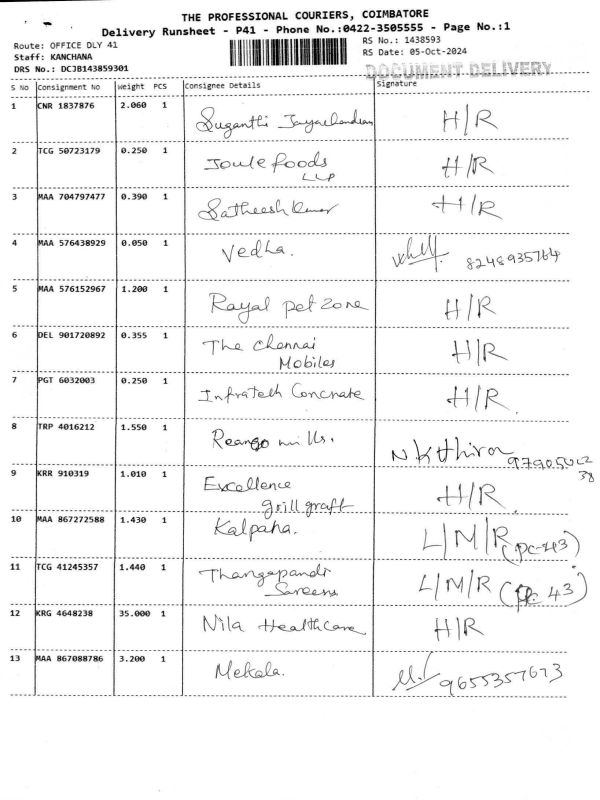 THE PROFESSIONAL COURIERS, COIMBATORE
Delivery Runsheet - P41 - Phone No.:0422-3505555 - Page No.:1
Route: OFFICE DLY 41 RS No.: 1438593
Staff: KANCHANA RS Date: 05-Oct-2024
DRS No.: DCJB143859301 DOCUMENT DELIVERY
S No Consignment No Weight PCS Consignee Details Signature
1 CNR 1837876 2.060 1 Suganthi Jayachandran H/R
2 TCG 50723179 0.250 1 Joule foods H/R
LLP
3 MAA 704797477 0.390 1 Satheesh Kumar H/R
4 MAA 576438929 0.050 1 Vedha. 8248935764
5 MAA 576152967 1.200 1 Rayal pet zone H/R
6 DEL 901720892 0.355 1 The chennai H/R
Mobiles
7 PGT 6032003 0.250 1 Infratech Concrate H/R.
8 TRP 4016212 1.550 1 mills. N Kathiron
9 KRR 910319 1.010 1 Excellence H/R.
grill graft
10 MAA 867272588 1.430 1 Kalpana. L/M/R (pc-43)
11 TCG 41245357 1.440 1 Thangapandi L/M/R (pc 43)
Sareens
12 KRG 4648238 35.000 1 Nila Healthcare H/R
13 MAA 867088786 3.200 1 Mekala. 9655357673